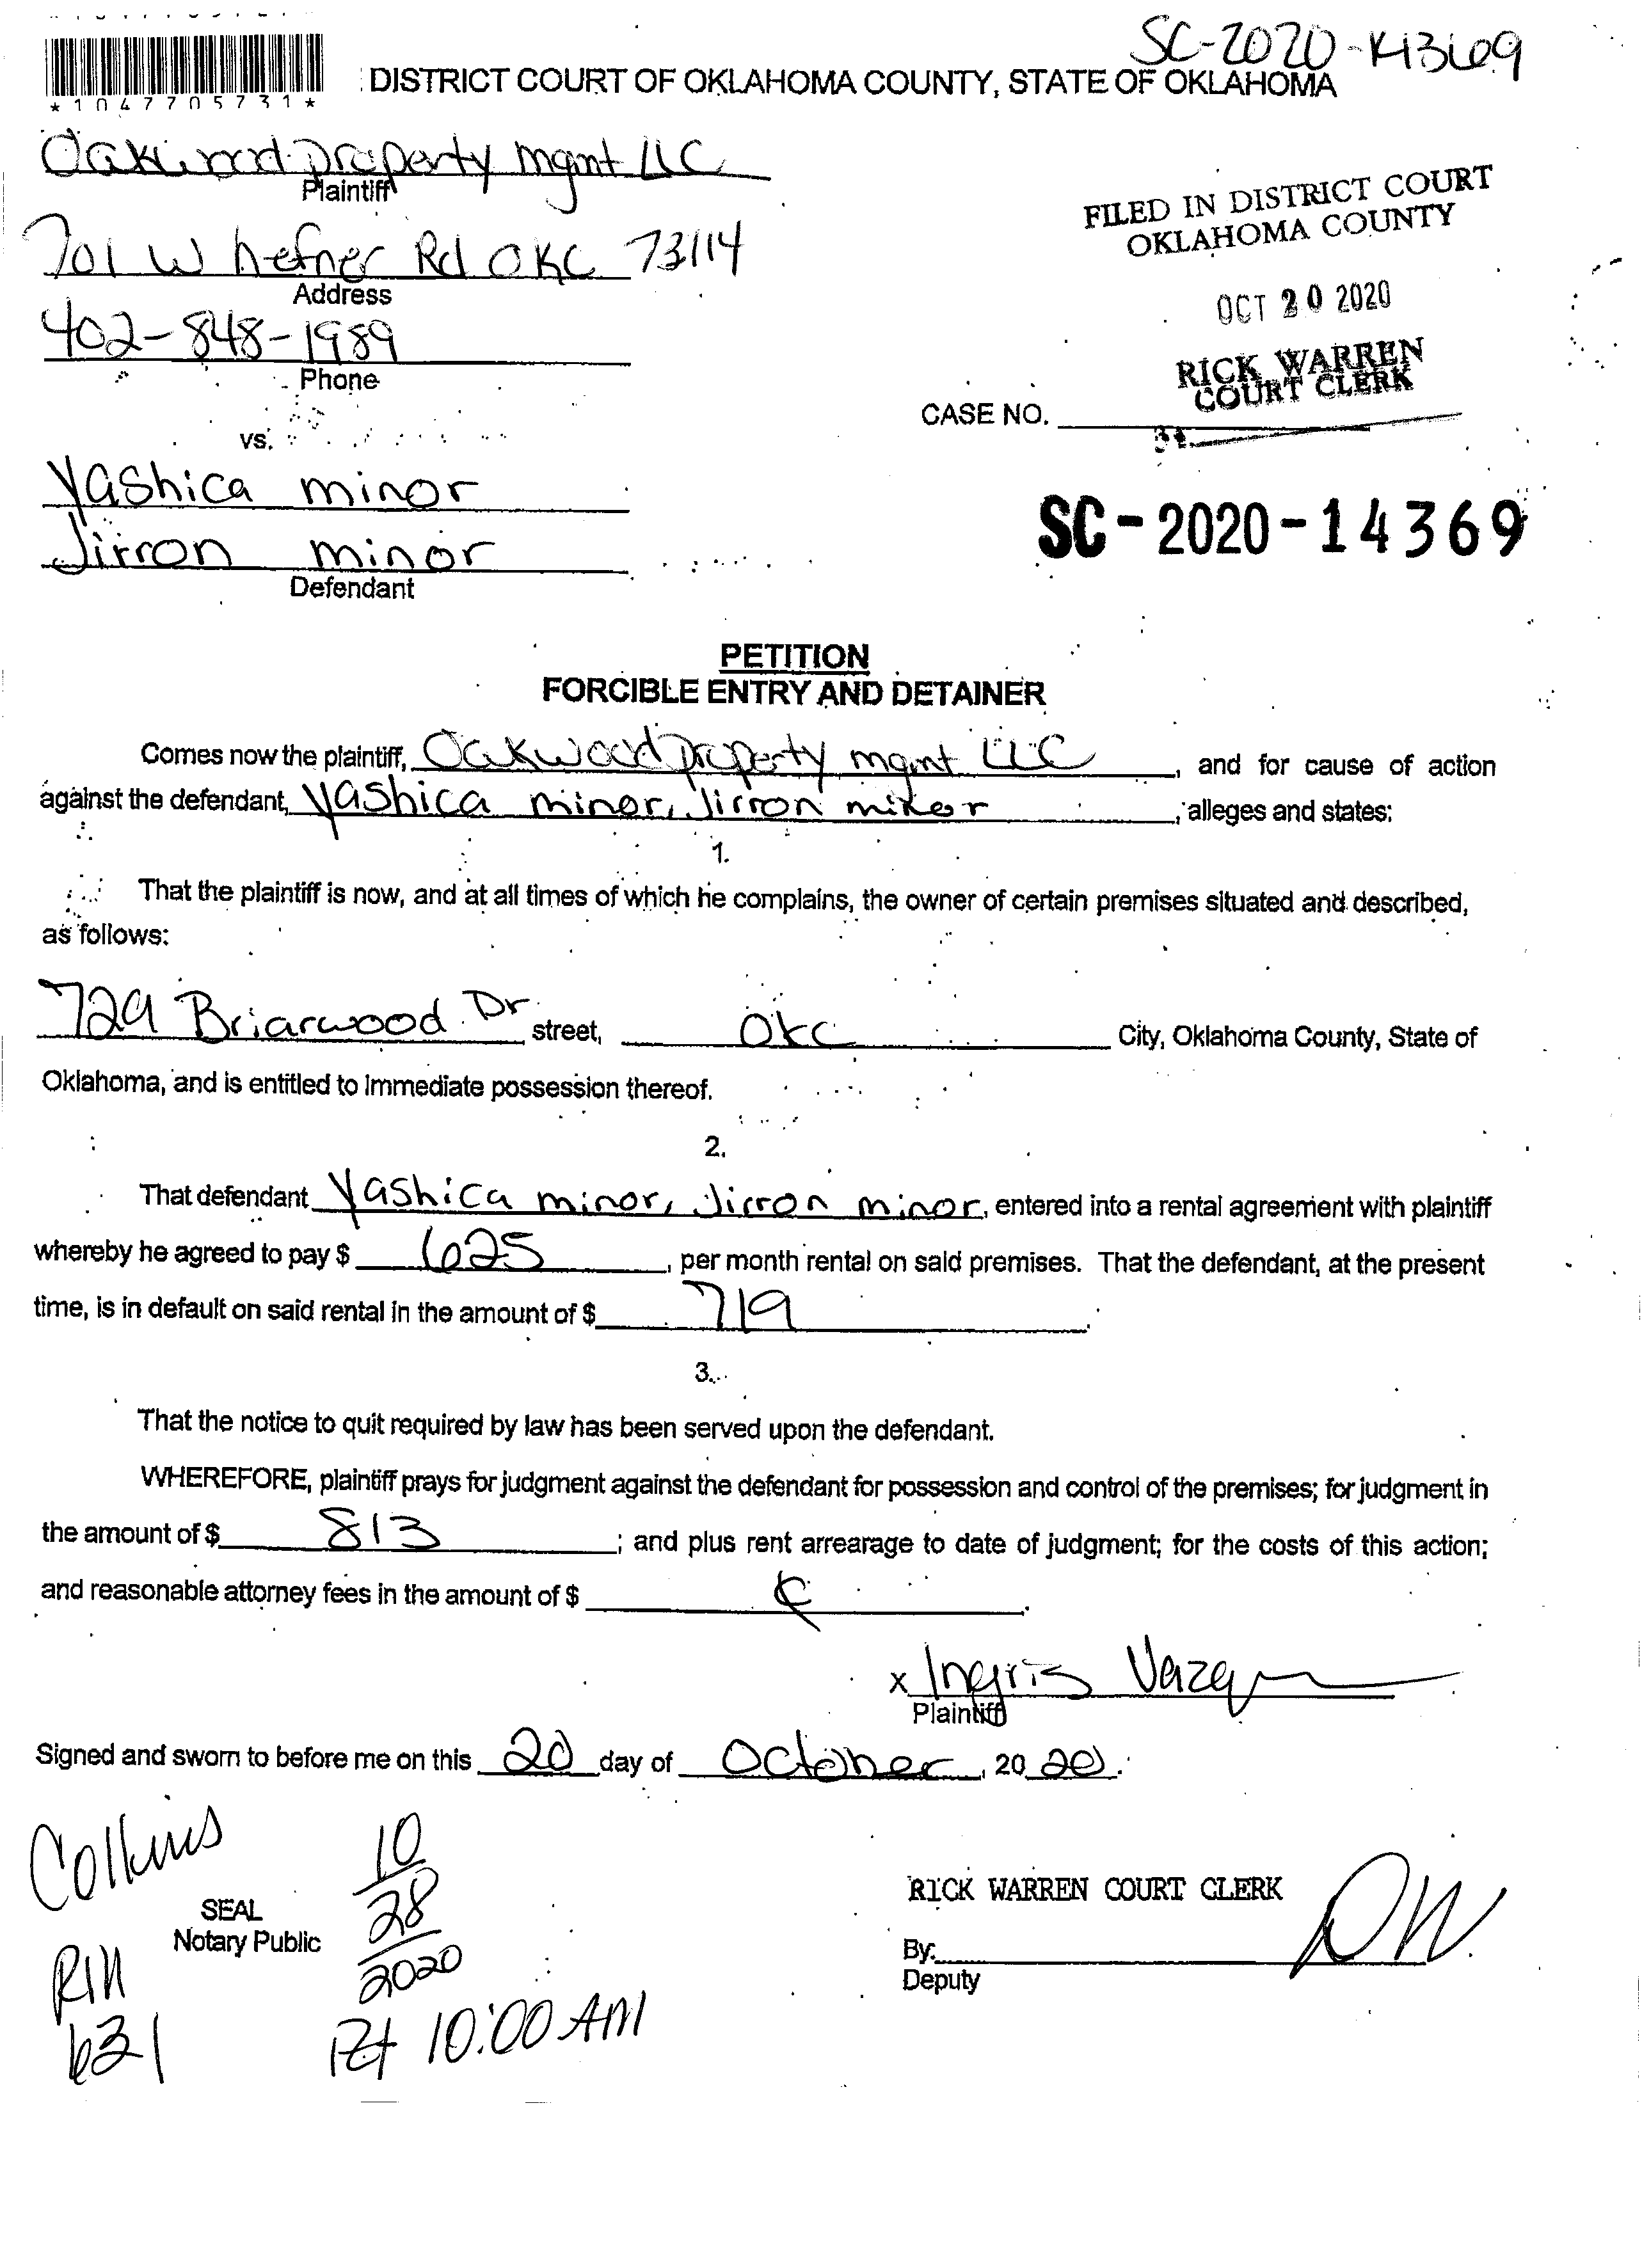 SC-2020-14369
*1047705731*
DISTRICT COURT OF OKLAHOMA COUNTY, STATE OF OKLAHOMA
Oakwood property mgmt LLC
Plaintiff
701 W hefner Rd OKC 73114
Address
402-848-1989
Phone
FILED IN DISTRICT COURT
OKLAHOMA COUNTY
OCT 20 2020
RICK WARREN
COURT CLERK
CASE NO.
vs.
Yashica minor
Jirron minor
Defendant
SC-2020-14369
PETITION
FORCIBLE ENTRY AND DETAINER
Comes now the plaintiff, Oakwood property mgmt LLC, and for cause of action
against the defendant, Yashica minor, Jirron minor, alleges and states:
1.
That the plaintiff is now, and at all times of which he complains, the owner of certain premises situated and described,
as follows:
729 Briarwood Dr street, OKC City, Oklahoma County, State of
Oklahoma, and is entitled to immediate possession thereof.
2.
That defendant Yashica minor, Jirron minor, entered into a rental agreement with plaintiff
whereby he agreed to pay $ 625, per month rental on said premises. That the defendant, at the present
time, is in default on said rental in the amount of $ 719.
3.
That the notice to quit required by law has been served upon the defendant.
WHEREFORE, plaintiff prays for judgment against the defendant for possession and control of the premises; for judgment in
the amount of $ 813; and plus rent arrearage to date of judgment; for the costs of this action;
and reasonable attorney fees in the amount of $
x Ingris Vazq
Plaintiff
Signed and sworn to before me on this 20 day of October, 2020.
Collins
10
28
2020
SEAL
Notary Public
RM
631
10:00 AM
RICK WARREN COURT CLERK
By: DW
Deputy